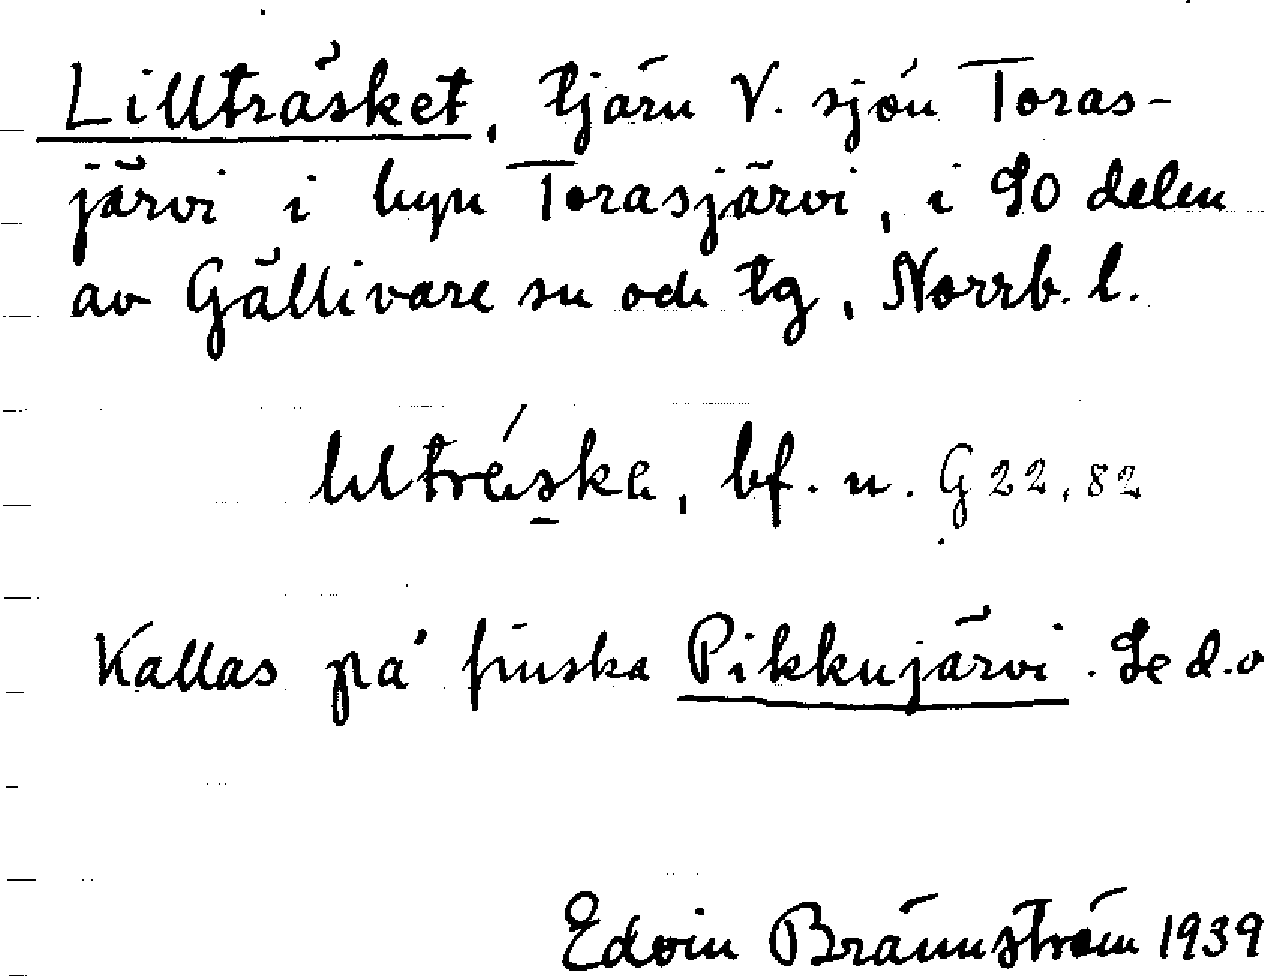 Lillträsket, tjärn V. sjön Toras-
järvi i byn Torasjärvi, i SO delen
av Gällivare sn och tg, Norrb. l.
bf. n. G 22, 82
Kallas på finska Pikkujärvi. Se d. o
Edvin Brännström 1939